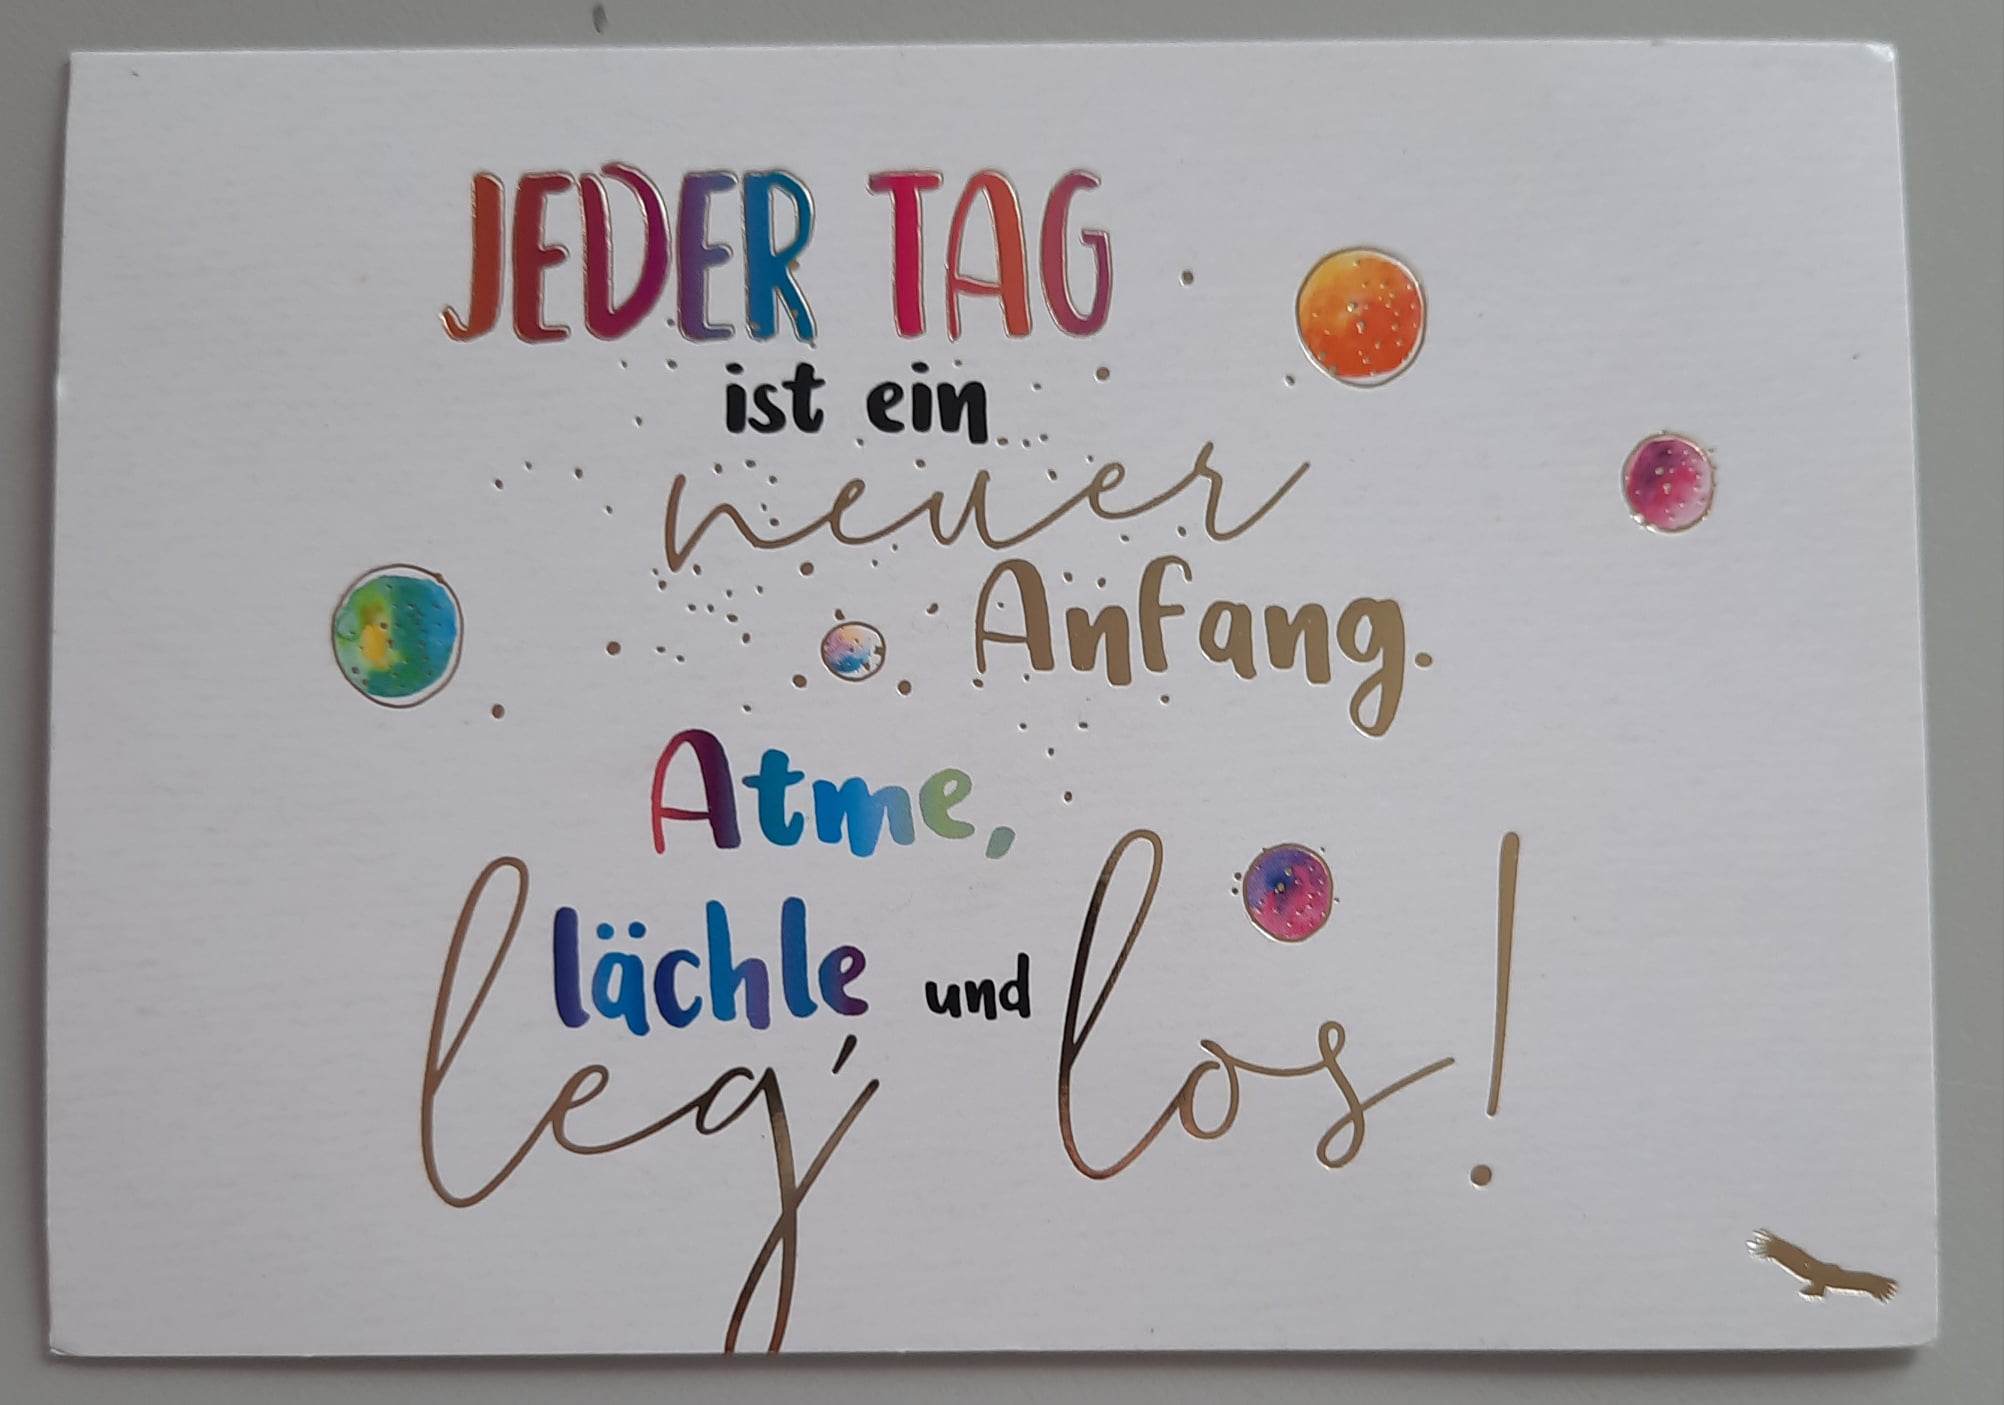 JEDER TAG
ist ein
neuer
Anfang.
Atme,
lächle und
leg' los!